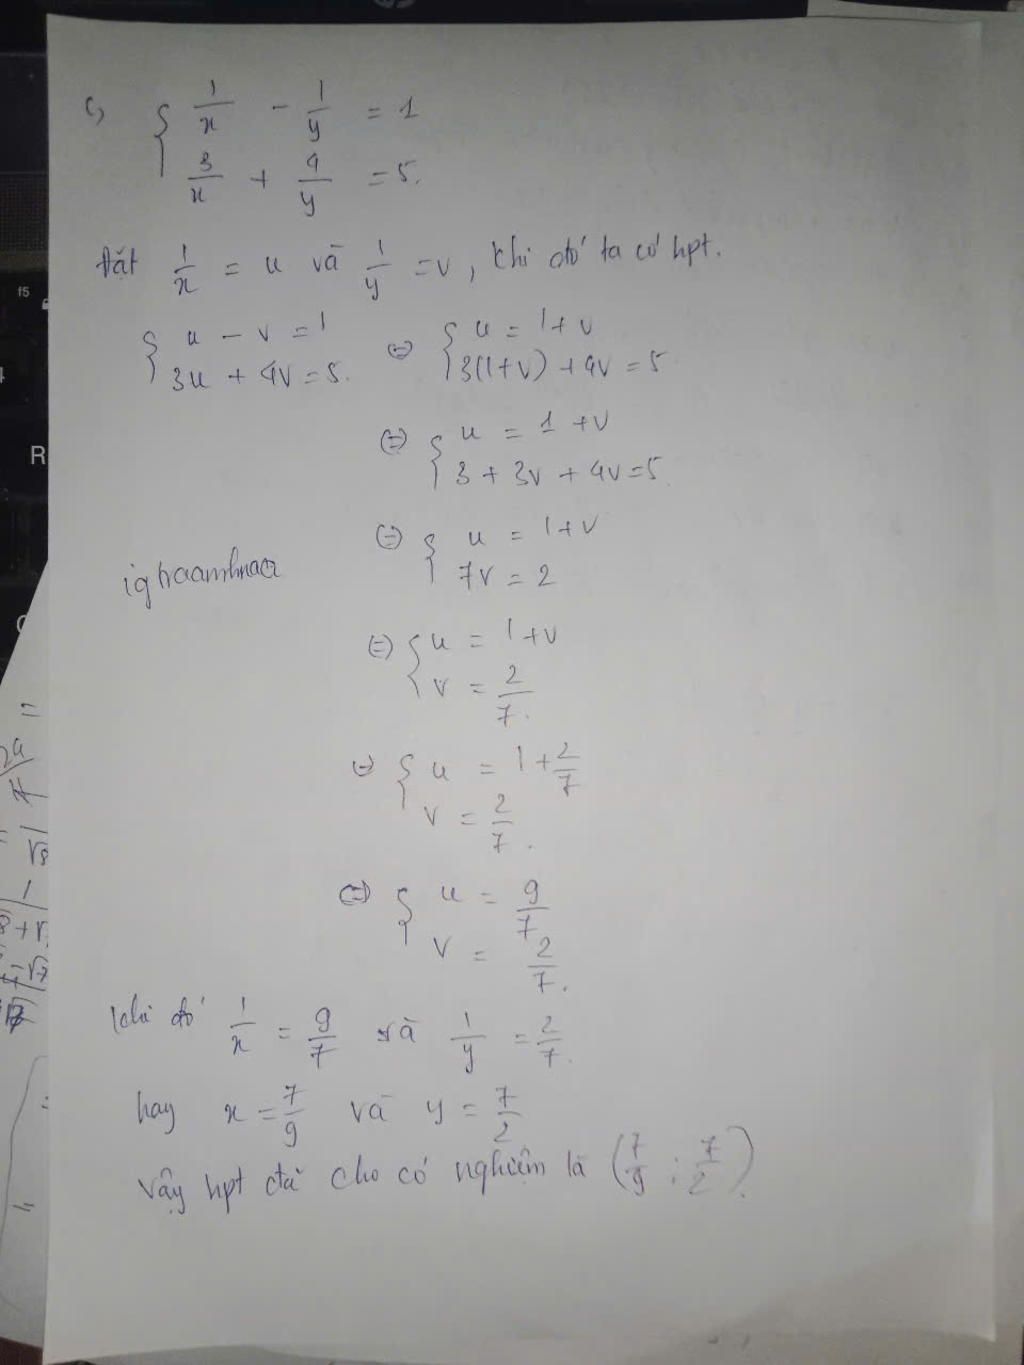 c, { 1/x - 1/y = 1
3/x + 4/y = 5.
Đặt 1/x = u và 1/y = v, khi đó ta có hpt.
{ u - v = 1 (=) { u = 1 + v
3u + 4v = 5. 3(1+v) + 4v = 5
(=) { u = 1 + v
3 + 3v + 4v = 5.
(=) { u = 1 + v
7v = 2
(=) { u = 1 + v
v = 2/7.
(=) { u = 1 + 2/7
v = 2/7.
(=) { u = 9/7
v = 2/7.
Khi đó 1/x = 9/7 và 1/y = 2/7.
hay x = 7/9 và y = 7/2
Vậy hpt đã cho có nghiệm là (7/9 ; 7/2).
f5
R